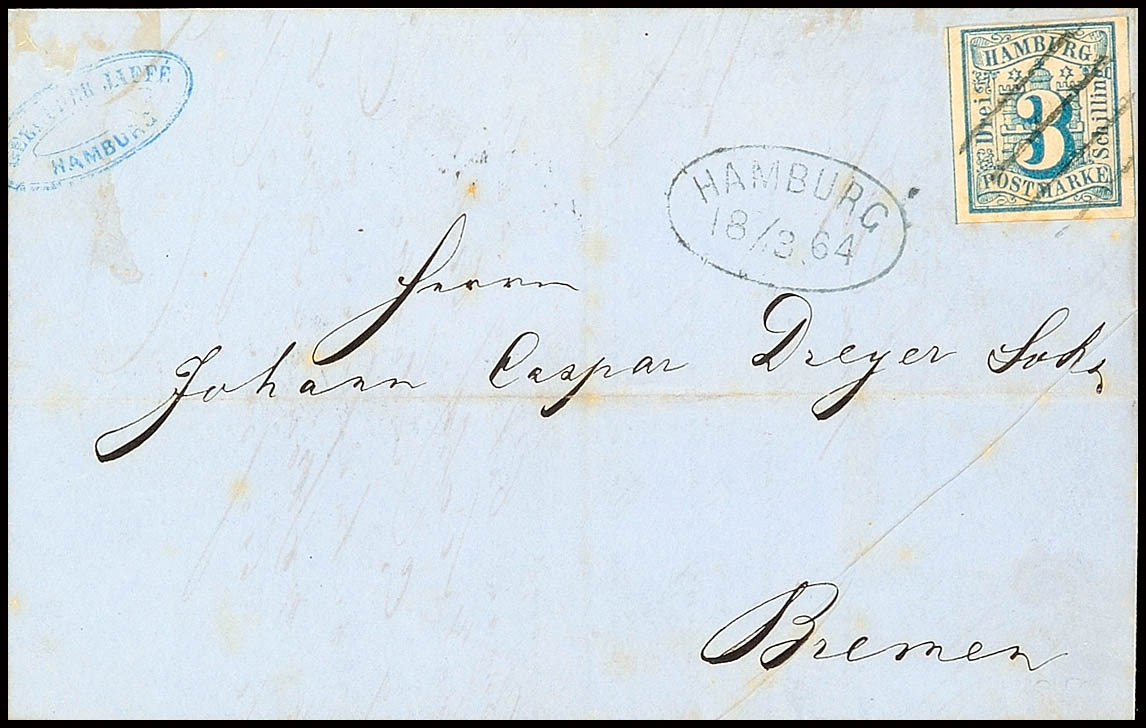 GEBRÜDER JAFFE
HAMBURG
HAMBURG
Drei
3
Schilling
POSTMARKE
HAMBURG
18/3.64
Herrn
Johann Caspar Dreyer Soh.
Bremen